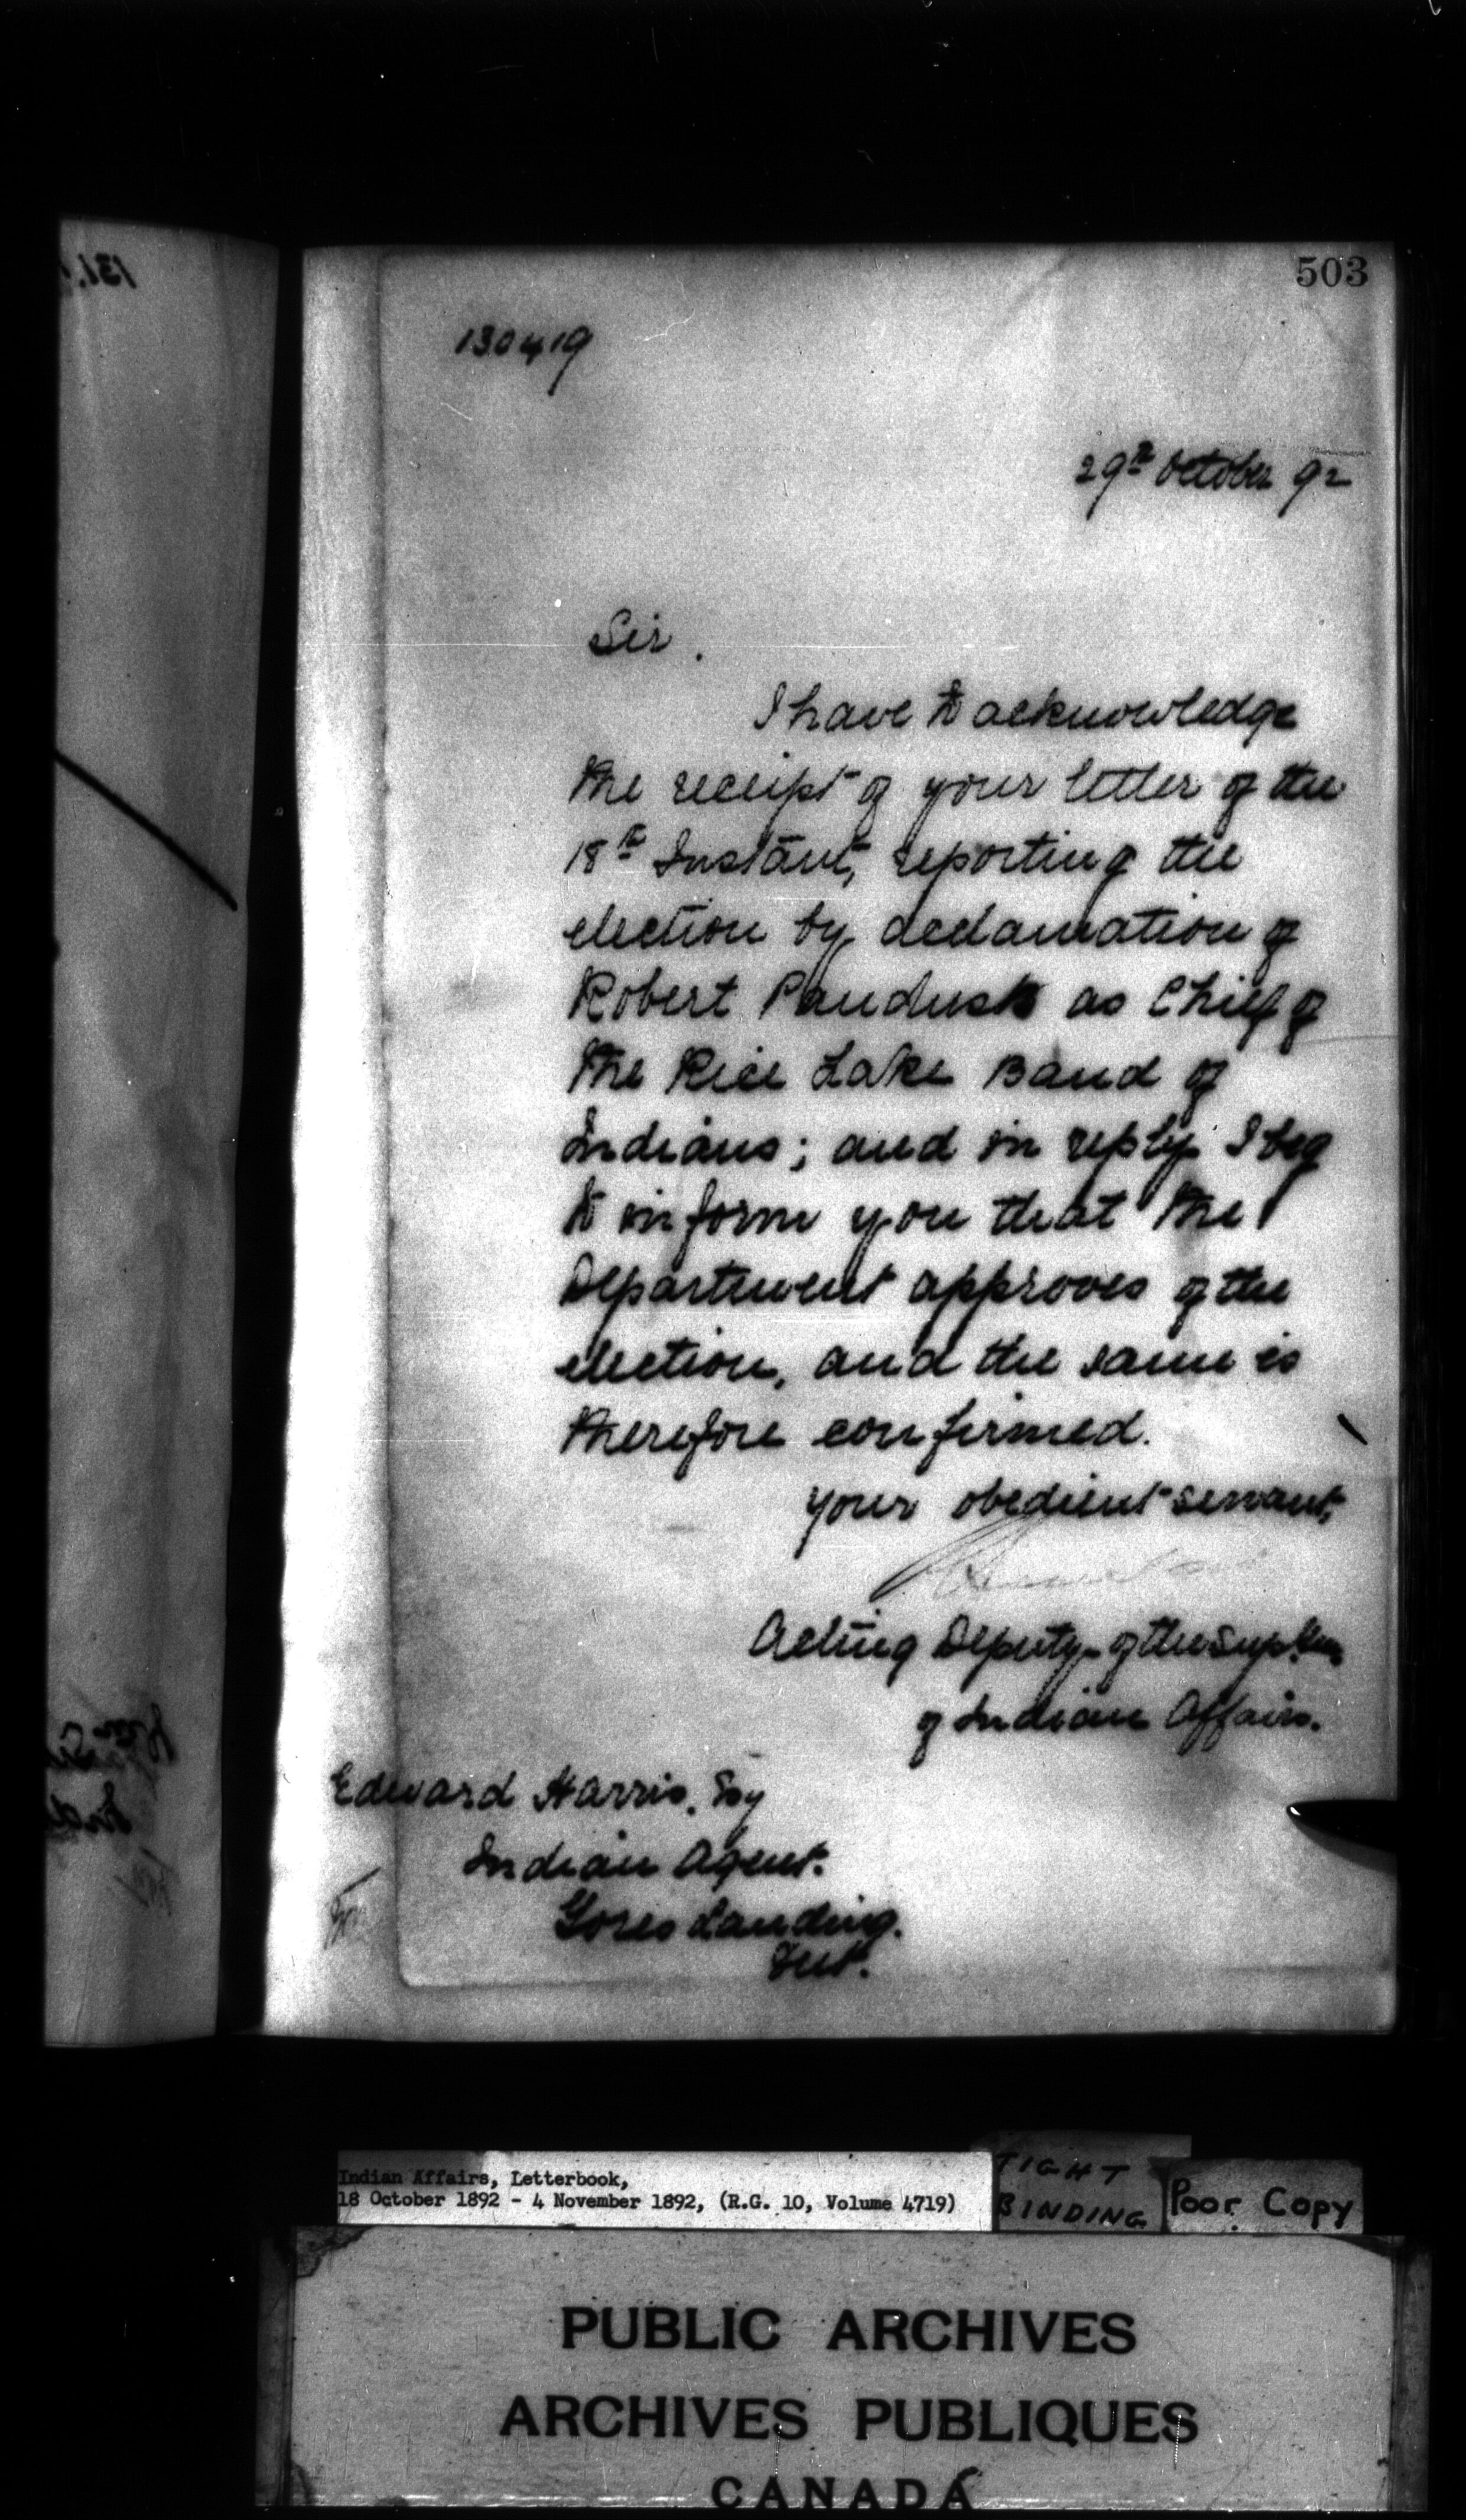 503
130419
29th October 92
Sir.
I have to acknowledge
the receipt of your letter of the
18th Instant, reporting the
election by acclamation of
Robert Paudash as Chief of
the Rice Lake Band of
Indians; and in reply I beg
to inform you that the
Department approves of the
election, and the same is
therefore confirmed.
your obedient servant,
Acting Deputy of the Supt. Gen.
of Indian Affairs.
Edward Harris, Esq
Indian Agent.
Gores Landing.
Ont.
Indian Affairs, Letterbook,
18 October 1892 - 4 November 1892, (R.G. 10, Volume 4719)
TIGHT
BINDING
Poor Copy
PUBLIC ARCHIVES
ARCHIVES PUBLIQUES
CANADA